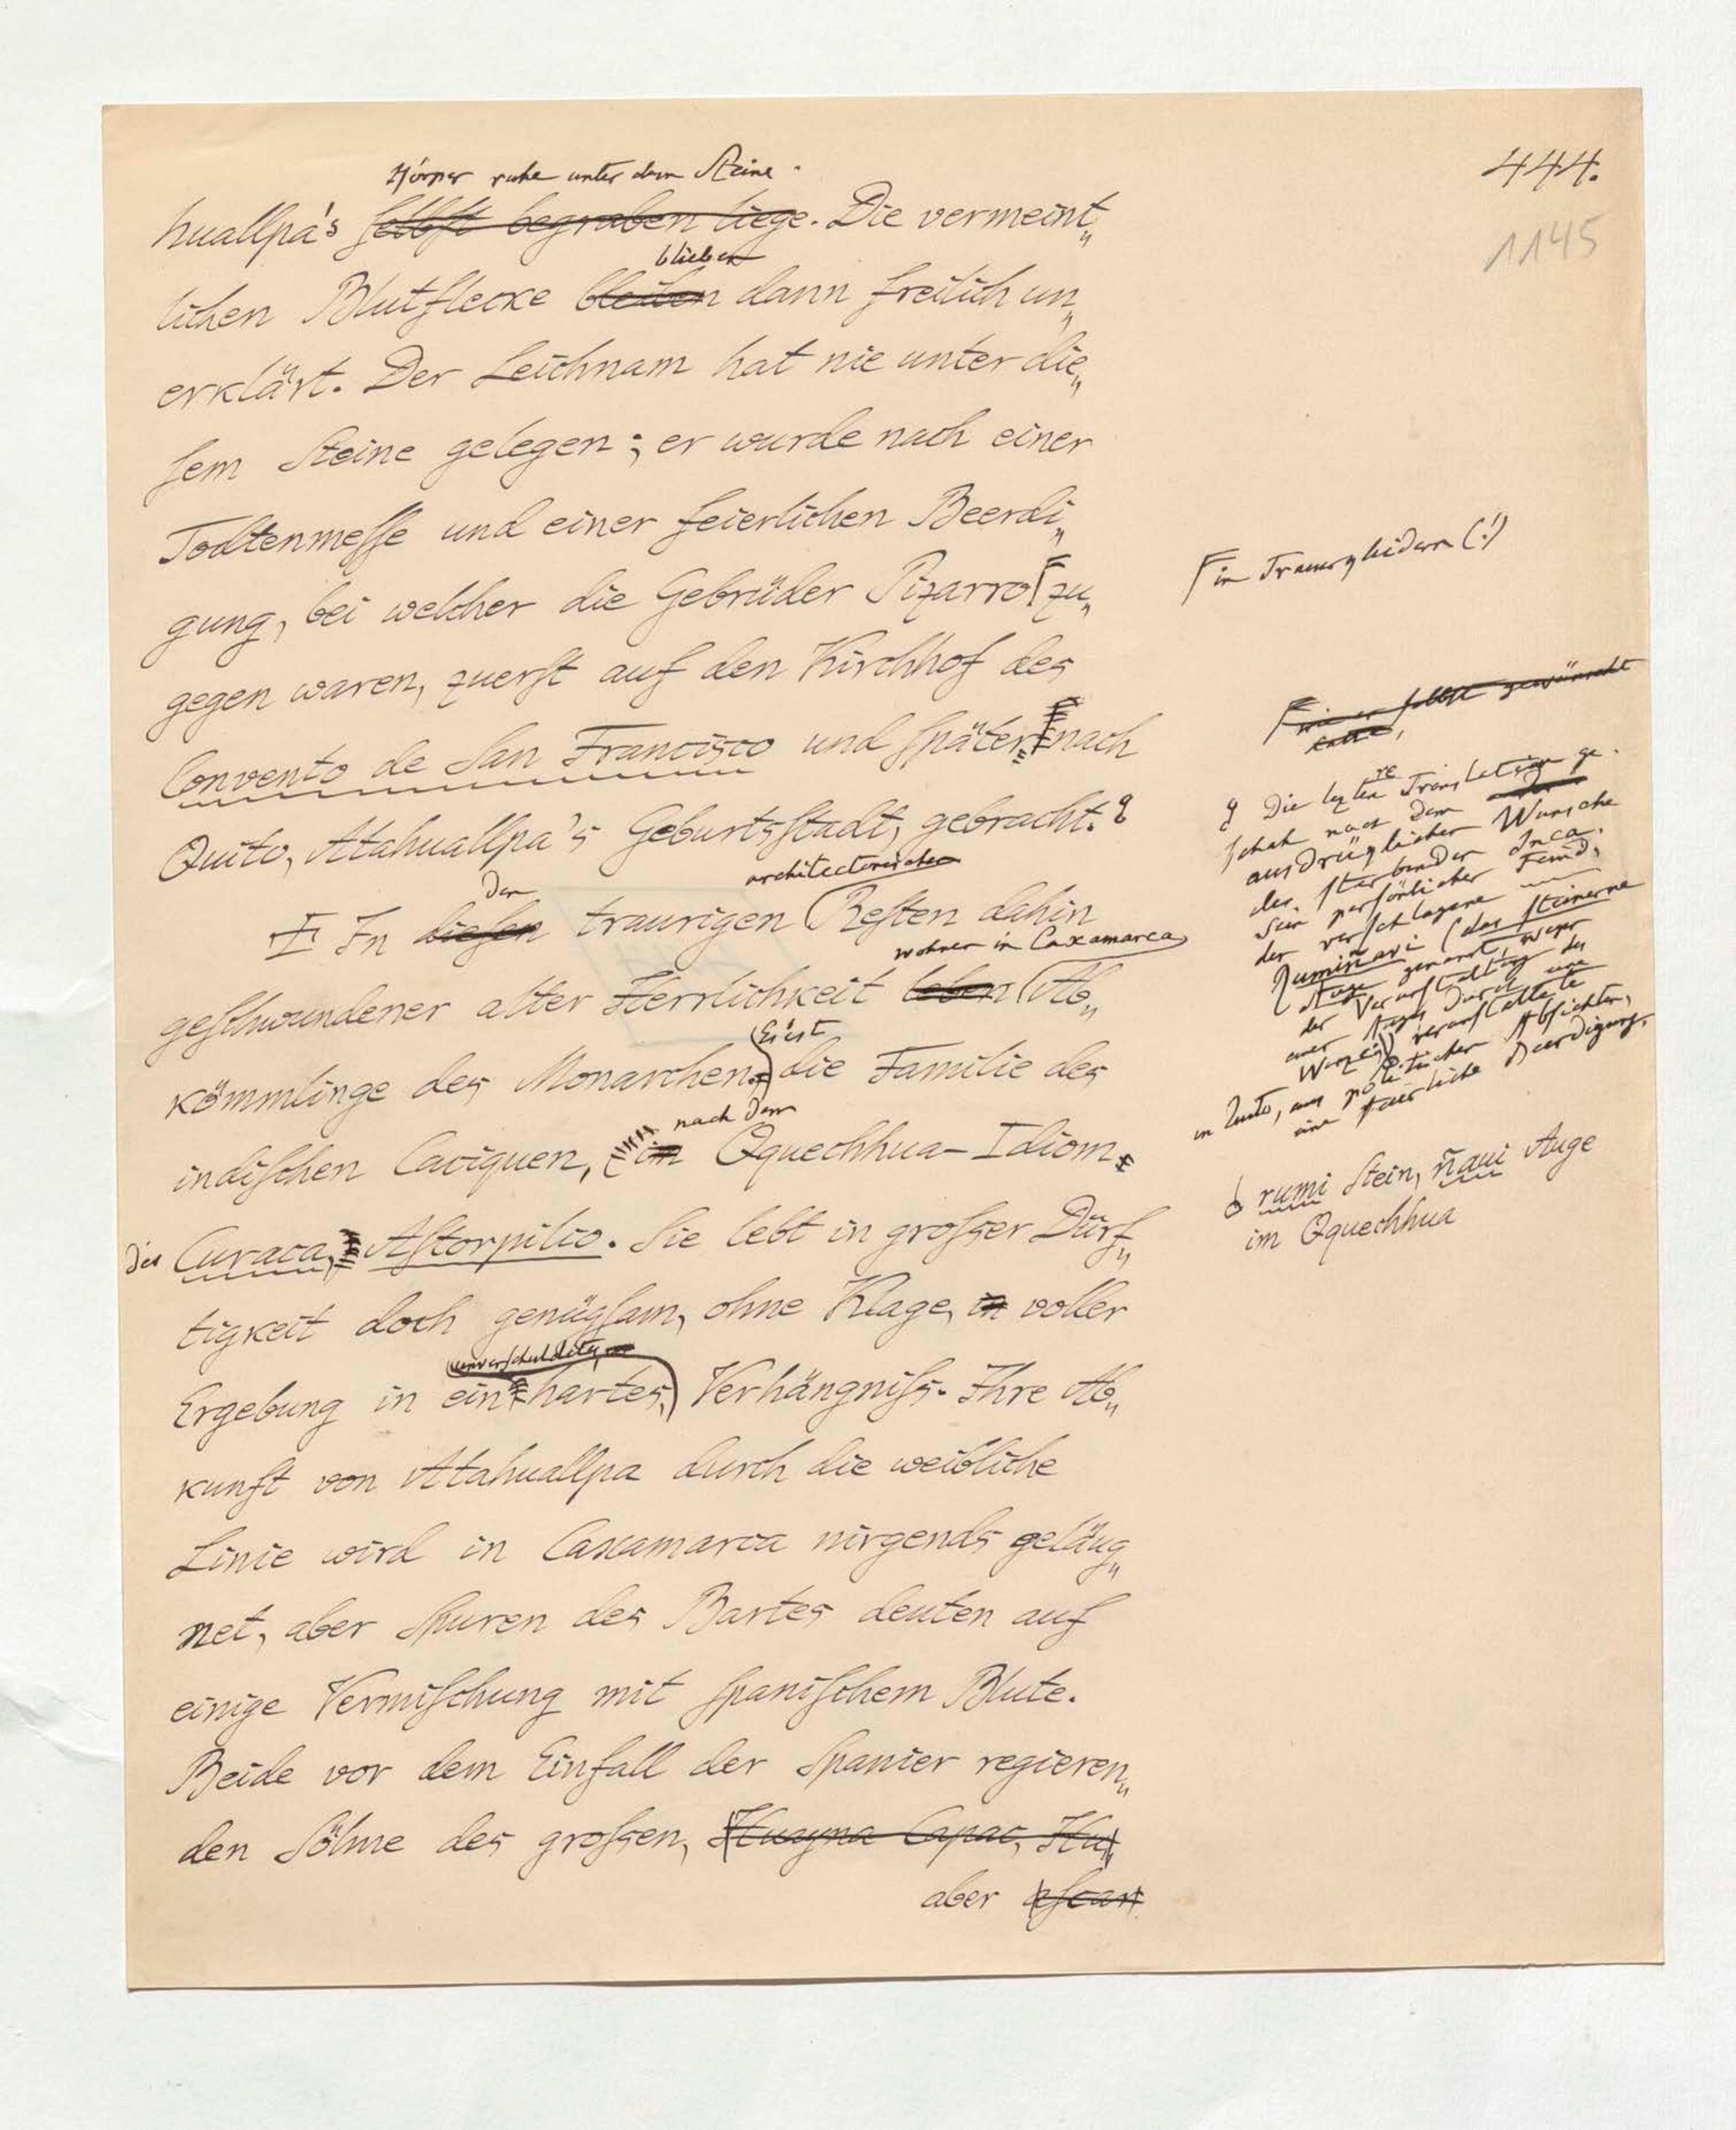 444.
1145
Körper ruhe unter dem Steine.
huallpa's selbst begraben liege. Die vermeint„
blieben
lichen Blutflecke bleiben dann freilich un„
erklärt. Der Leichnam hat nie unter die„
sem Steine gelegen; er wurde nach einer
Todtenmesse und einer feierlichen Beerdi„
gung, bei welcher die Gebrüder Pizarro zu„
gegen waren, zuerst auf den Kirchhof des
Convento de San Francisco und später nach
Quito, Atahuallpa's Geburtsstadt, gebracht.
den architectonischen
In diesen traurigen Resten dahin
wohnen in Caxamarca
geschwundener alter Herrlichkeit leben Ab„
kömmlinge des Monarchen. Es ist die Familie des
nach dem
indischen Caciquen, im Qquechhua-Idiom
des Curaca, Astorpilco. Sie lebt in grosser Dürf„
tigkeit doch genügsam, ohne Klage, in voller
unverschuldetes
Ergebung in ein hartes, Verhängniss. Ihre Ab„
kunft von Atahuallpa durch die weibliche
Linie wird in Caxamarca nirgends geläug„
net, aber Spuren des Bartes deuten auf
einige Vermischung mit spanischem Blute.
Beide vor dem Einfall der Spanier regieren„
den Söhne des grossen, Huayna Capac, Hu„
aber ascar
in Trauerkleidern (!)
wie er selbst gewünscht
hatte,
Die leztere Translation ge-
schah nach dem
ausdrüglichen Wunsche
des sterbenden Inca.
Sein persönlicher Feind,
der verschlagene
Rumiñavi (das steinerne
Auge genannt wegen
der Verunstaltung des
einen Auges durch eine
Warze) veranstaltete
in Quito, aus politischen Absichten,
eine feierliche Beerdigung.
rumi Stein, ñaui Auge
im Qquechhua